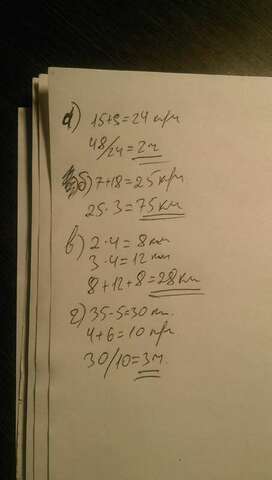 а) 15+9=24 км/ч
48/24=2ч
б) 7+18=25км/ч
25·3=75км
в) 2·4=8км
3·4=12км
8+12+8=28км
г) 35-5=30км.
4+6=10км/ч
30/10=3ч.